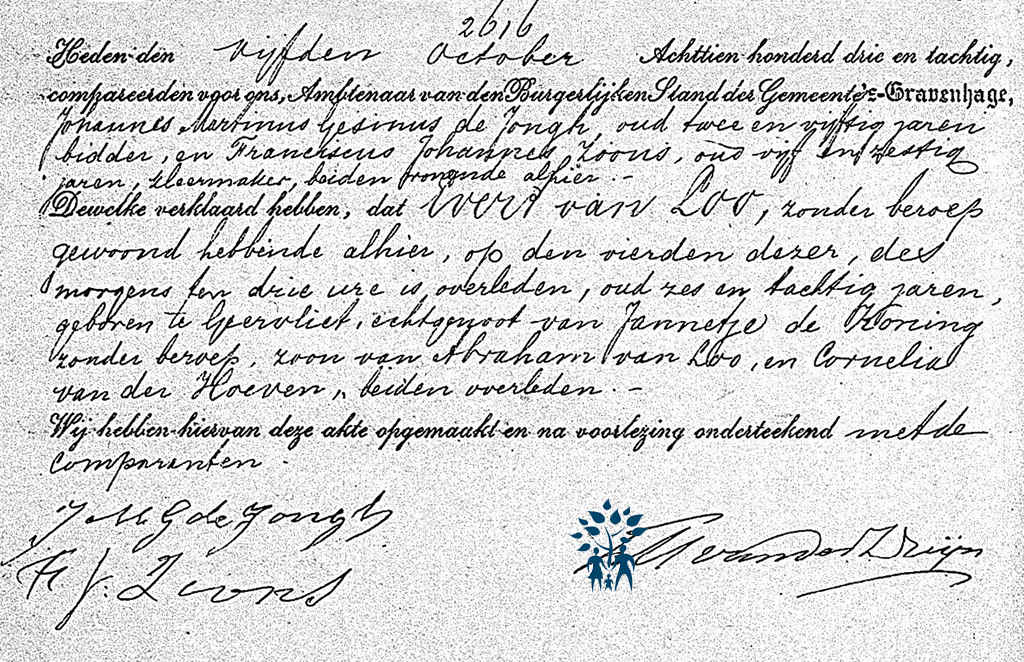 2616
Heden den vijfden October Achttien honderd drie en tachtig,
compareerden voor ons, Ambtenaar van den Burgerlijken Stand der Gemeente 's-Gravenhage,
Johannes Martinus Gesinus de Jongh, oud twee en vijftig jaren
bidder, en Franciscus Johannes Zoons, oud vijf en zestig
jaren, kleermaker, beiden wonende alhier. -
Dewelke verklaard hebben, dat Evert van Loo, zonder beroep
gewoond hebbende alhier, op den vierden dezer, des
morgens ten drie ure is overleden, oud zes en tachtig jaren,
geboren te Geervliet, echtgenoot van Jannetje de Koning
zonder beroep, zoon van Abraham van Loo, en Cornelia
van der Hoeven, beiden overleden. -
Wij hebben hiervan deze akte opgemaakt en na voorlezing onderteekend met de
comparanten.
J M G de Jongh
F. J. Zoons